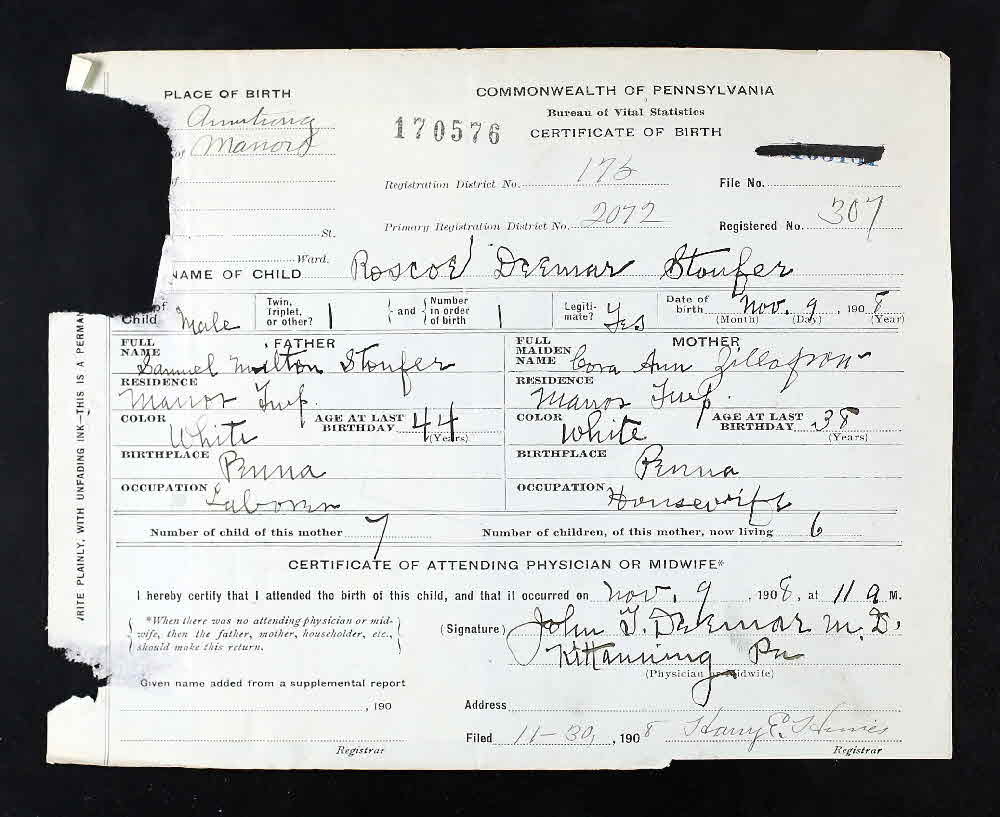 PLACE OF BIRTH
COMMONWEALTH OF PENNSYLVANIA
Armstrong
Bureau of Vital Statistics
of Manor
170576
CERTIFICATE OF BIRTH
of
Registration District No. 175
File No.
St.
Primary Registration District No. 2072
Registered No. 307
Ward.
NAME OF CHILD Roscoe Deemar Stoufer
of Child Male
Twin, Triplet, or other? 1
and
Number in order of birth 1
Legitimate? Yes
Date of birth Nov. 9, 1908
(Month) (Day) (Year)
FATHER
MOTHER
FULL NAME Samuel Milton Stoufer
FULL MAIDEN NAME Cora Ann
RESIDENCE Manor Twp.
RESIDENCE Manor Twp.
COLOR White
AGE AT LAST BIRTHDAY 44 (Years)
COLOR White
AGE AT LAST BIRTHDAY 38 (Years)
BIRTHPLACE Penna
BIRTHPLACE Penna
OCCUPATION Laborer
OCCUPATION Housewife
Number of child of this mother 7
Number of children, of this mother, now living 6
CERTIFICATE OF ATTENDING PHYSICIAN OR MIDWIFE*
I hereby certify that I attended the birth of this child, and that it occurred on Nov. 9, 1908, at 11 a M.
*When there was no attending physician or mid-
wife, then the father, mother, householder, etc.,
should make this return.
(Signature) John T. Deemar M.D.
Kittanning Pa
(Physician or Midwife)
Given name added from a supplemental report
, 190
Address
Filed 11-30, 1908 Harry E.
Registrar
Registrar
WRITE PLAINLY, WITH UNFADING INK—THIS IS A PERMAN